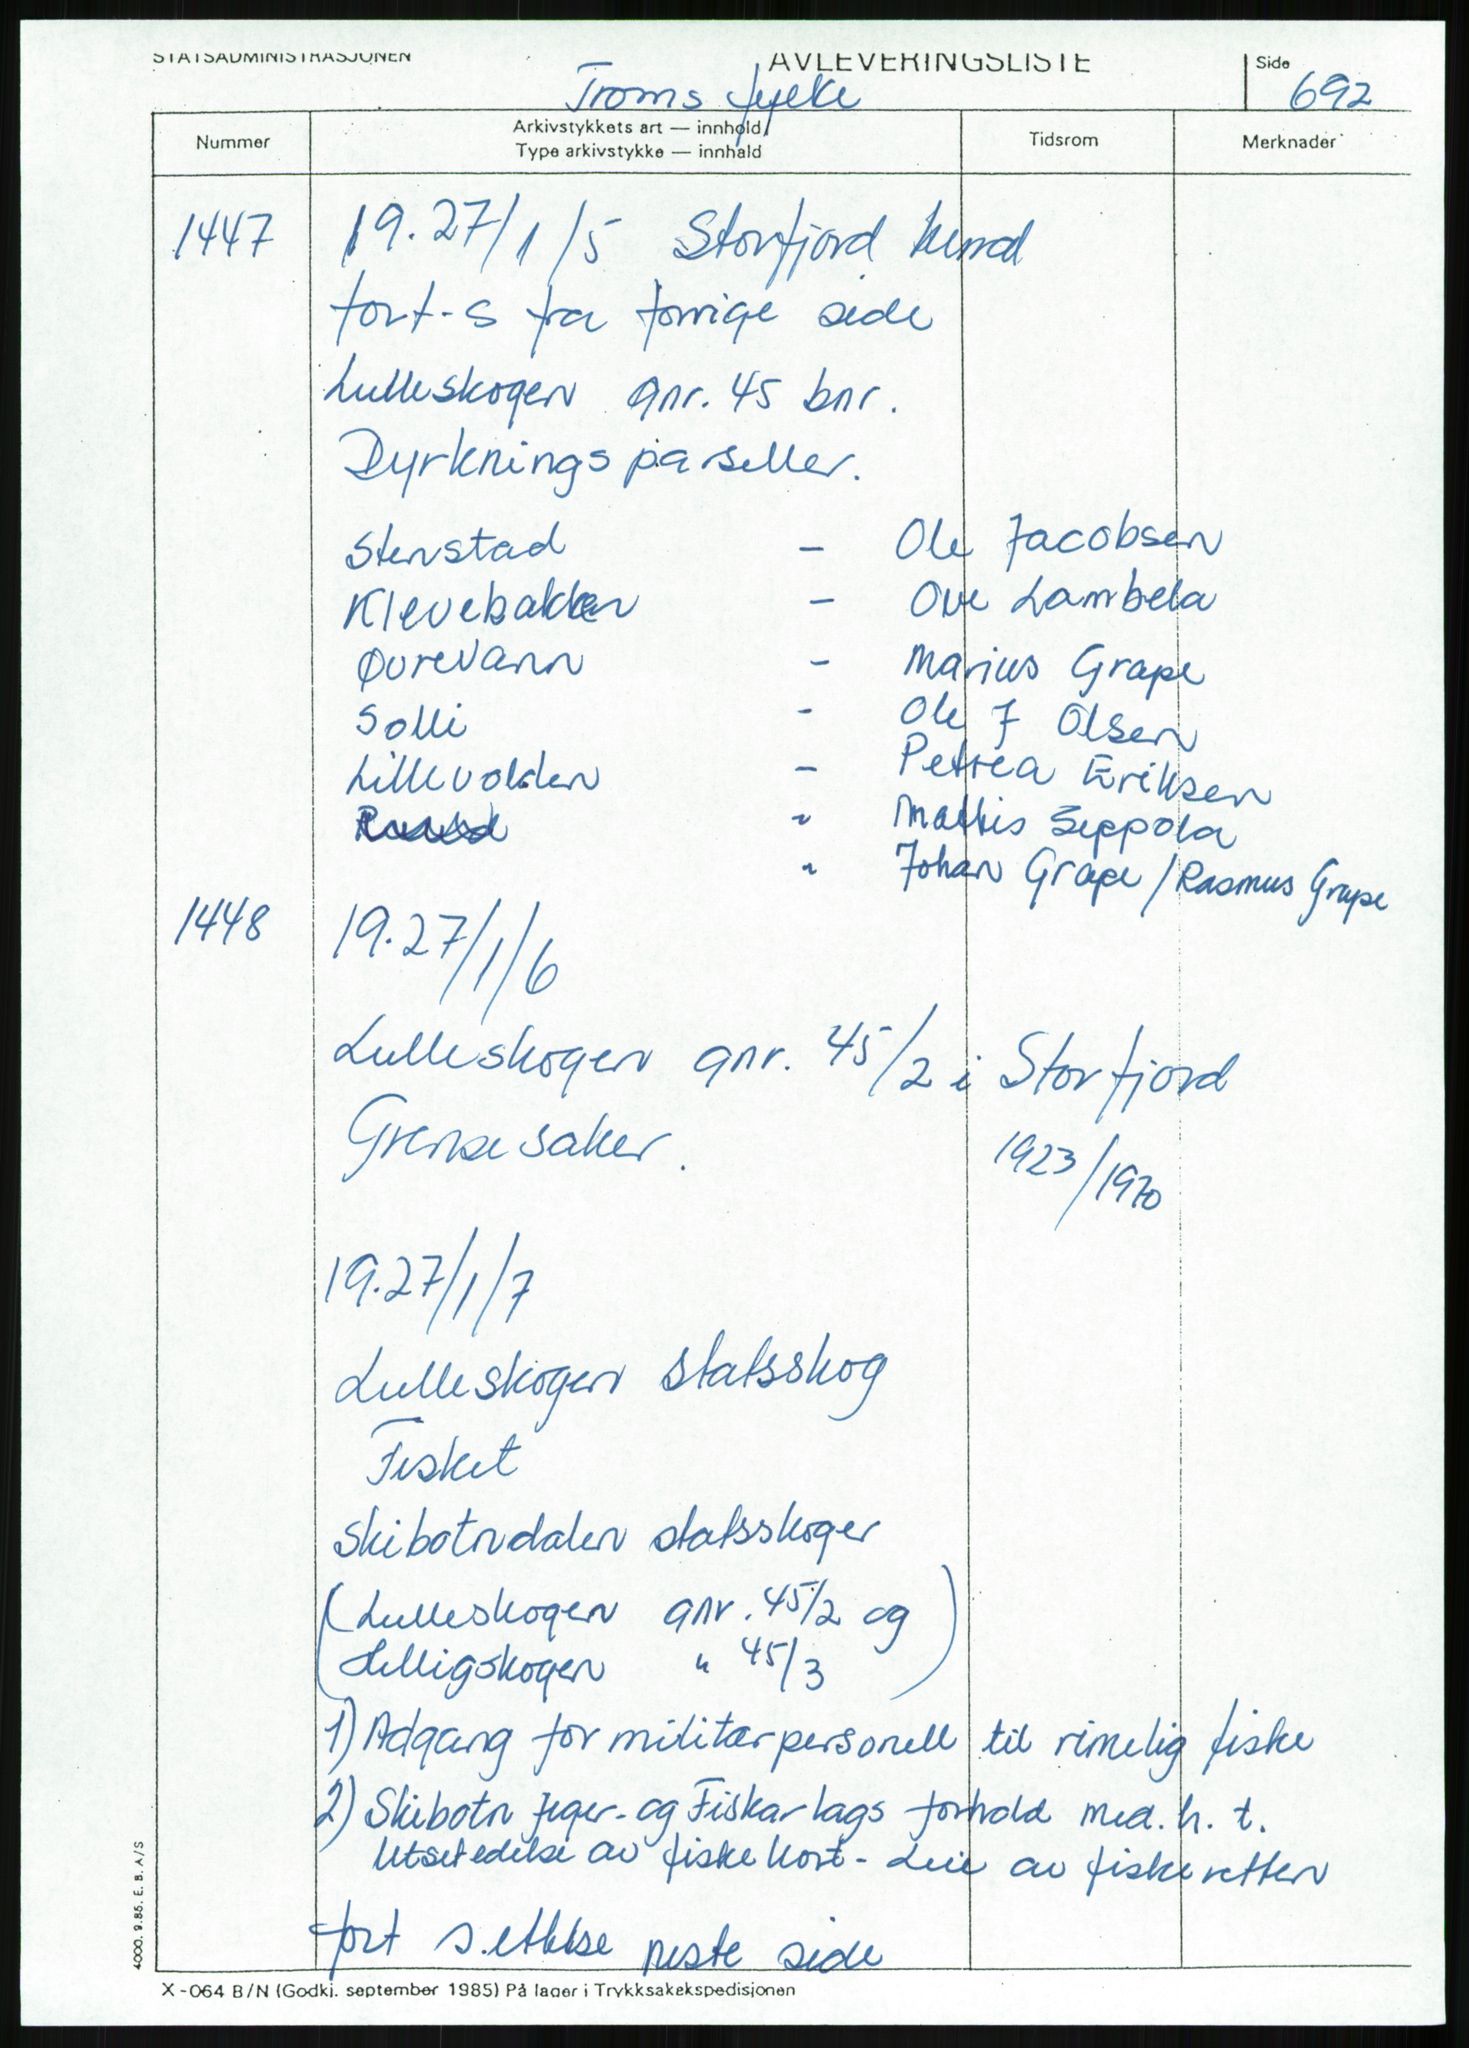 STATSADMINISTRASJONEN AVLEVERINGSLISTE Side
Troms fylke 692
Nummer Arkivstykkets art — innhold/ Type arkivstykke — innhald Tidsrom Merknader
1447 19.27/1/5 Storfjord
fort-s fra forrige side
Lulleskogen gnr. 45 bnr.
Dyrkningsparseller.
Stenstad - Ole Jacobsen
Klevebakken - Ove Lambela
Øvrevann - Marius Grape
Solli - Ole J Olsen
Lillevolden - Petrea Eriksen
" Mathis Seppola
" Johan Grape / Rasmus Grape
1448 19.27/1/6
Lulleskogen gnr. 45/2 i Storfjord
Grensesaker. 1923/1970
19.27/1/7
Lulleskogen statsskog
Fisket
Skibotndalen statsskoger
(Lulleskogen gnr. 45/2 og
Helligskogen " 45/3)
1) Adgang for militærpersonell til rimelig fiske
2) Skibotn Jeger- og Fiskarlags forhold med. h. t.
utstedelse av fiskekort - Leie av fiskeretten
fort s.ettelse neste side
4000. 9.85. E. B. A/S
X-064 B/N (Godkj. september 1985) På lager i Trykksakekspedisjonen